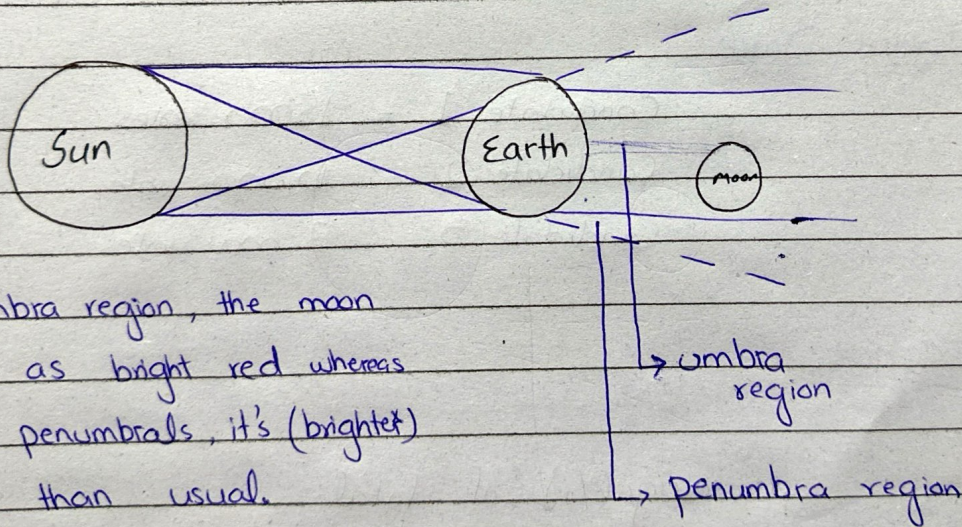 Sun
Earth
Moon
bra region, the moon
as bright red whereas
penumbrals, it's (brighter)
than usual.
umbra
region
penumbra region